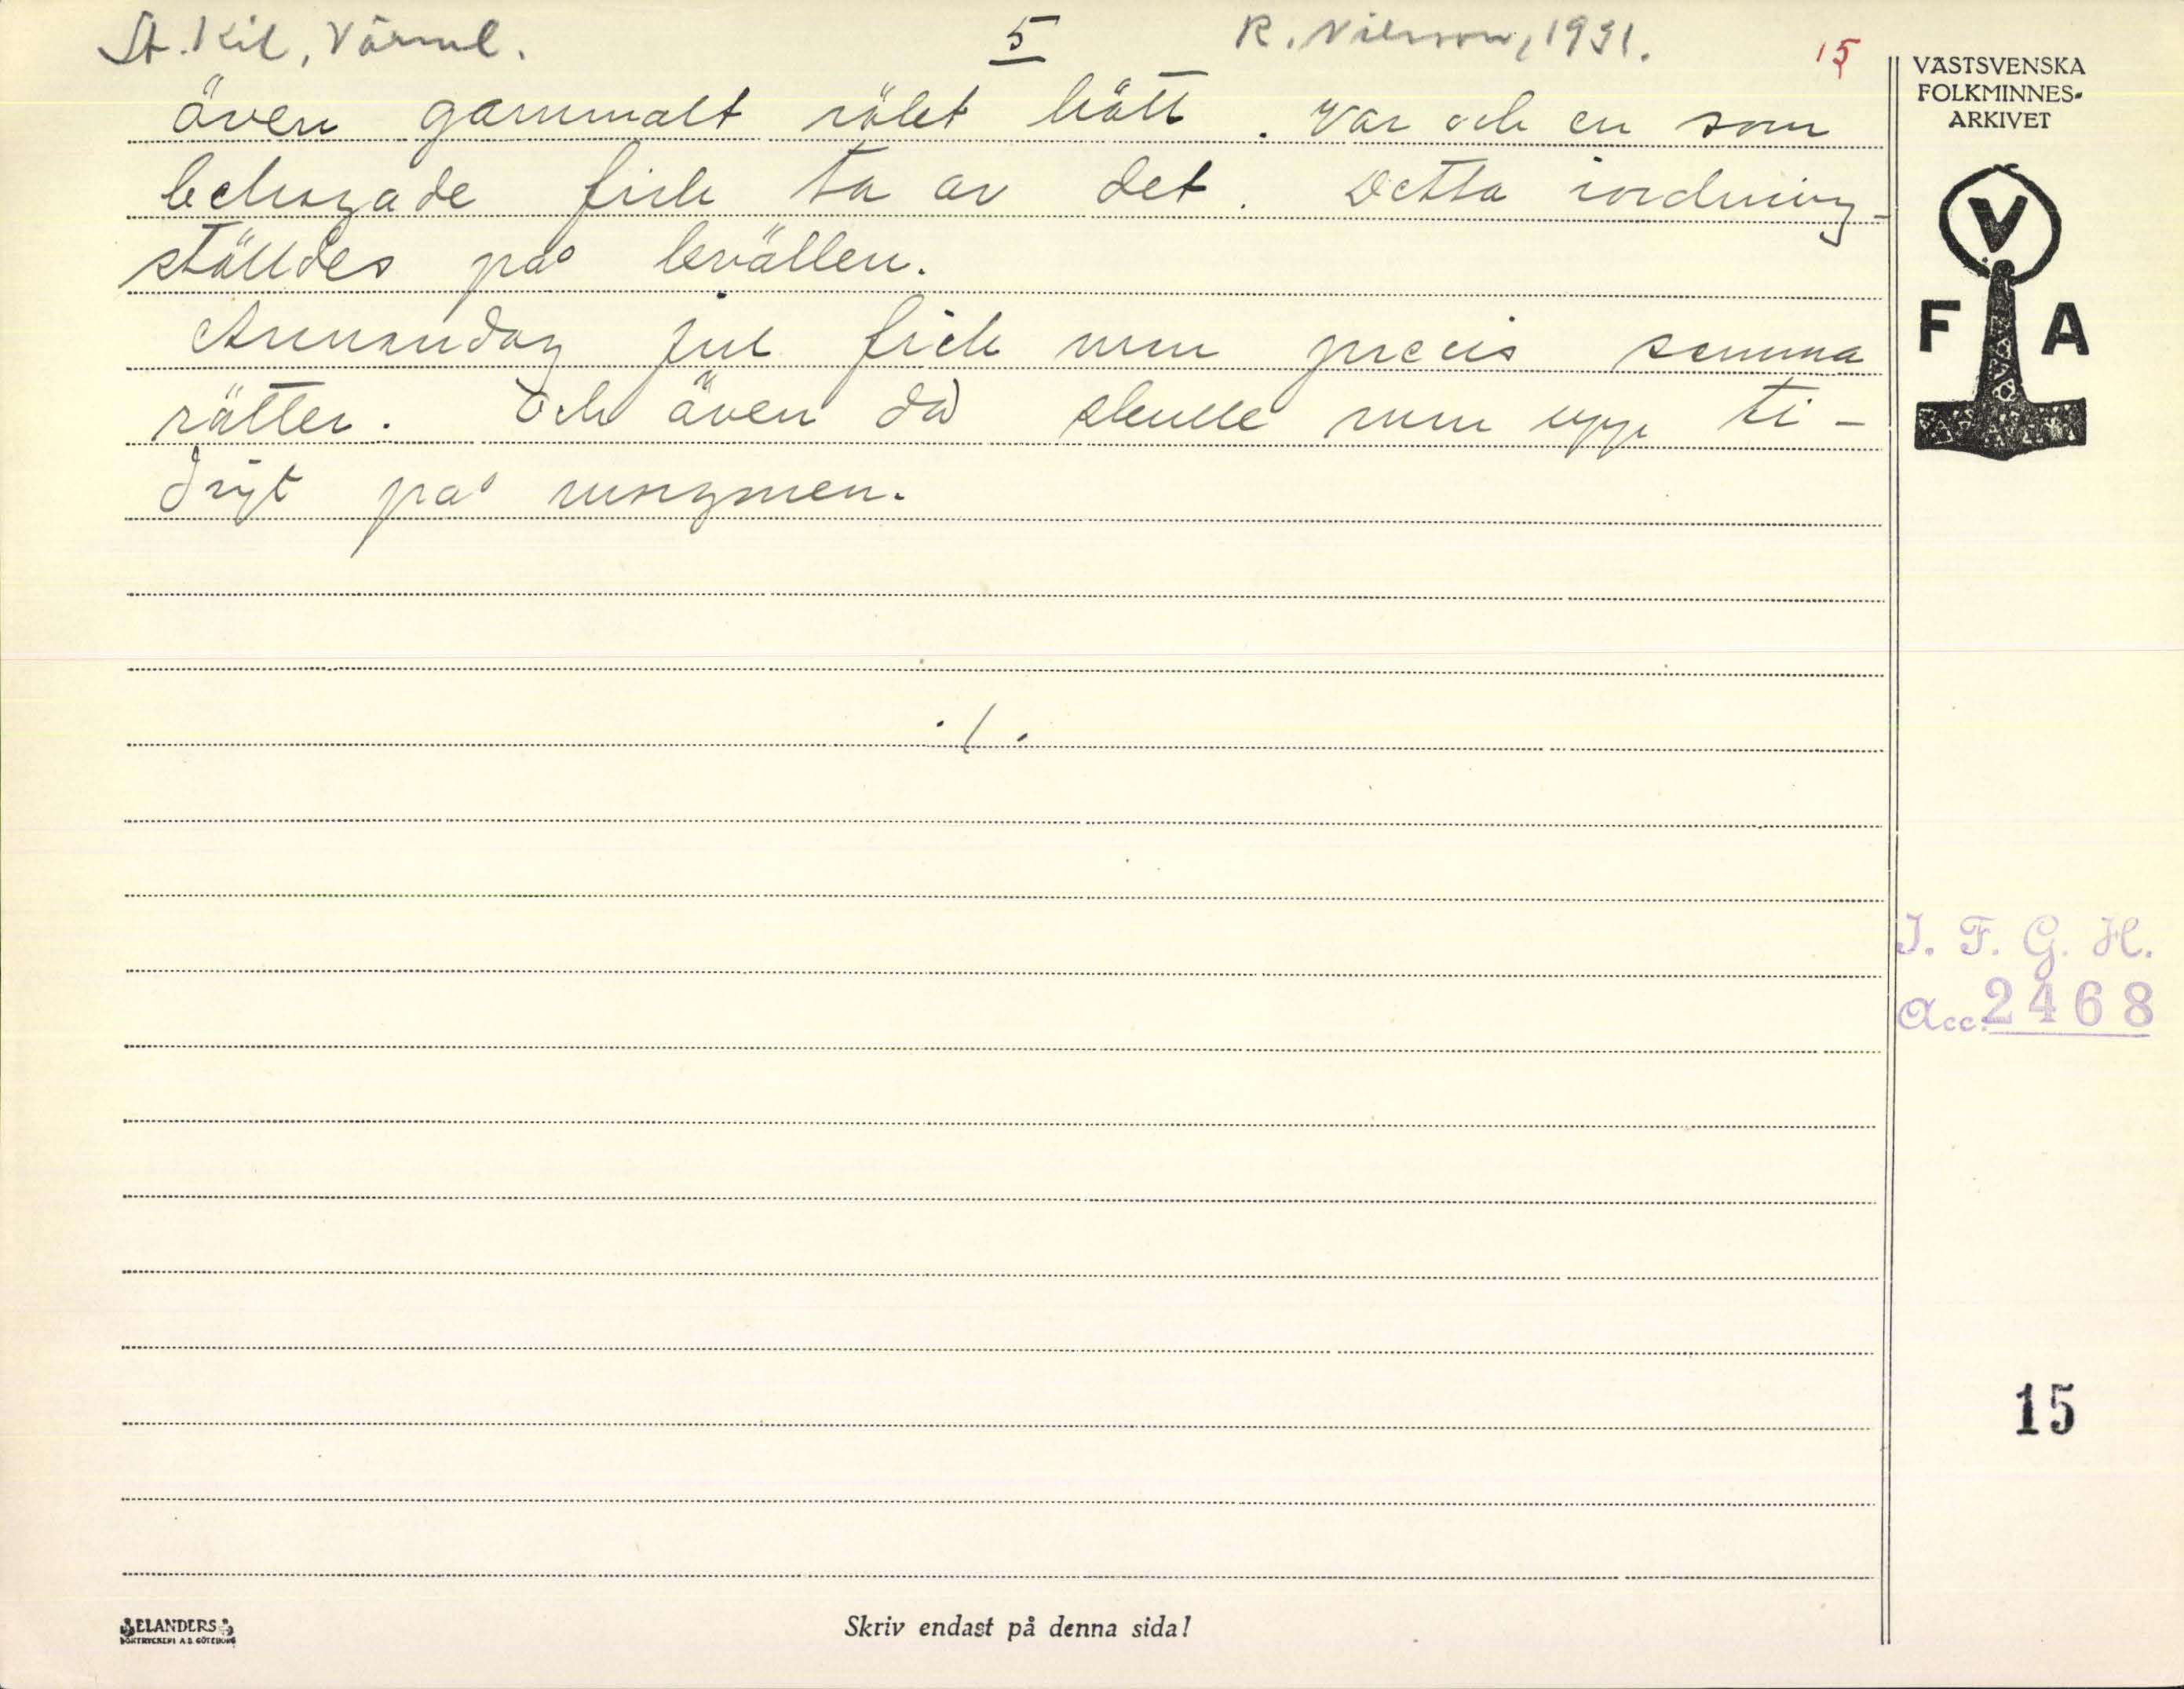 St. Kil, Värml.
5
R. Nilsson, 1931.
15
även gammalt rökt kött. Var och en som
behagade fick ta av det. Detta iordning-
ställdes på kvällen.
Annandag jul fick man precis samma
rätter. Och även då skulle man upp ti-
digt på morgonen.
./.
VÄSTSVENSKA
FOLKMINNES-
ARKIVET
V
F A
I. F. G. H.
Acc. 2468
15
ELANDERS
BOKTRYCKERI A.B. GÖTEBORG
Skriv endast på denna sida!